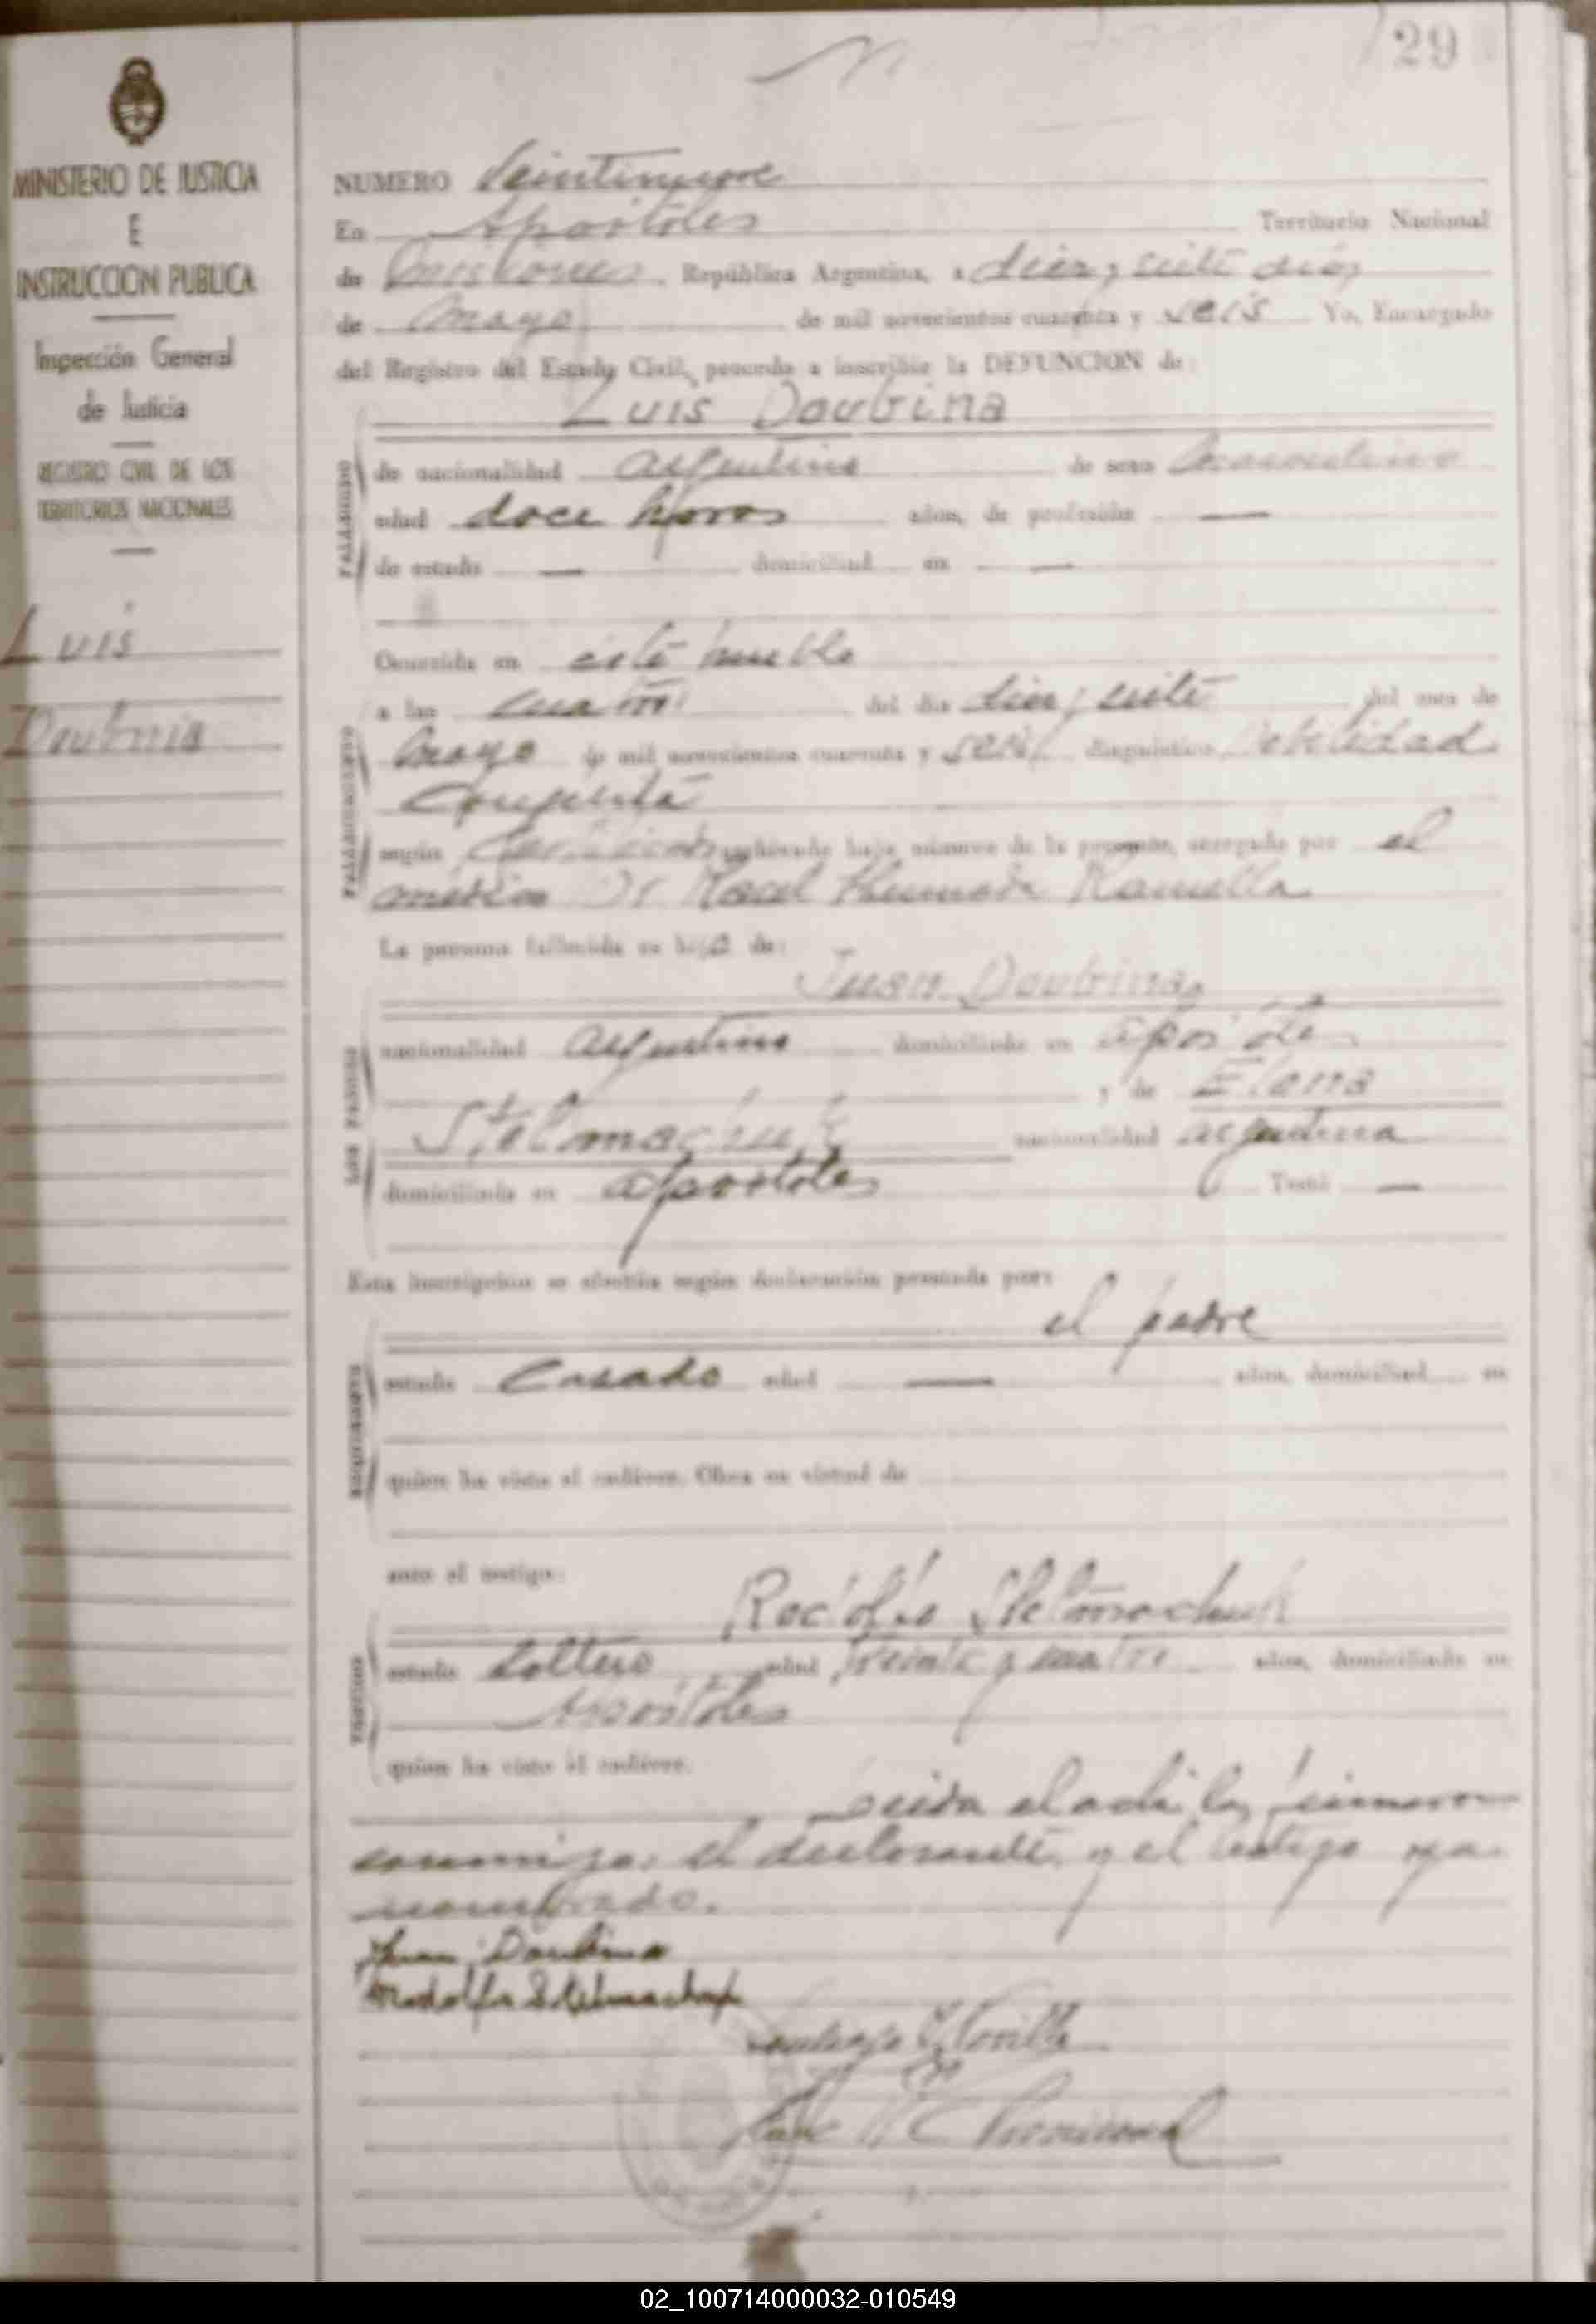 29
MINISTERIO DE JUSTICIA
E
INSTRUCCION PUBLICA
Inspección General
de Justicia
REGISTRO CIVIL DE LOS
TERRITORIOS NACIONALES
Luis
Doubnia
NUMERO Veintinueve
En Apóstoles Territorio Nacional
de Misiones, República Argentina, a diez y siete días
de Mayo de mil novecientos cuarenta y seis Yo, Encargado
del Registro del Estado Civil, procedo a inscribir la DEFUNCION de:
Luis Doubina
FALLECIDO
de nacionalidad argentino de sexo masculino
edad doce horas años, de profesión —
de estado — domiciliad en —
Ocurrida en este pueblo
a las cuatro del día diez y siete del mes de
FALLECIMIENTO
Mayo de mil novecientos cuarenta y seis, diagnóstico, Debilidad
Congenita
según Certificado archivado bajo número de la presente, otorgado por el
médico Dr
La persona fallecida es hijo de:
Juan Doubina,
LOS PADRES
nacionalidad argentino domiciliado en
y de Elena
Stelmachuk nacionalidad argentina
domiciliada en apostoles Testó —
Esta inscripción se efectúa según declaración prestada por:
el padre
estado Casado edad — años, domiciliad en
quien ha visto el cadáver. Obra en virtud de
ante el testigo:
Rodolfo Stelmachuk
TESTIGO
estado soltero edad treinta y cuatro años, domiciliado en
Apóstoles
quien ha visto el cadáver.
Leída el acta la firmaron
conmigo, el declarante, y el testigo ya
nombrado.
Juan Doubina
Rodolfo Stelmachuk
02_100714000032-010549